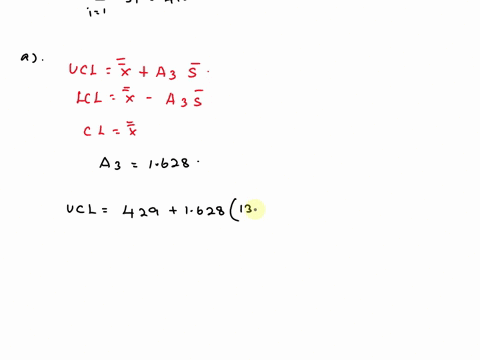 i=1
a).
UCL = x̿ + A3 s̄ .
LCL = x̿ - A3 s̄
CL = x̿
A3 = 1.628 .
UCL = 429 + 1.628 (13.